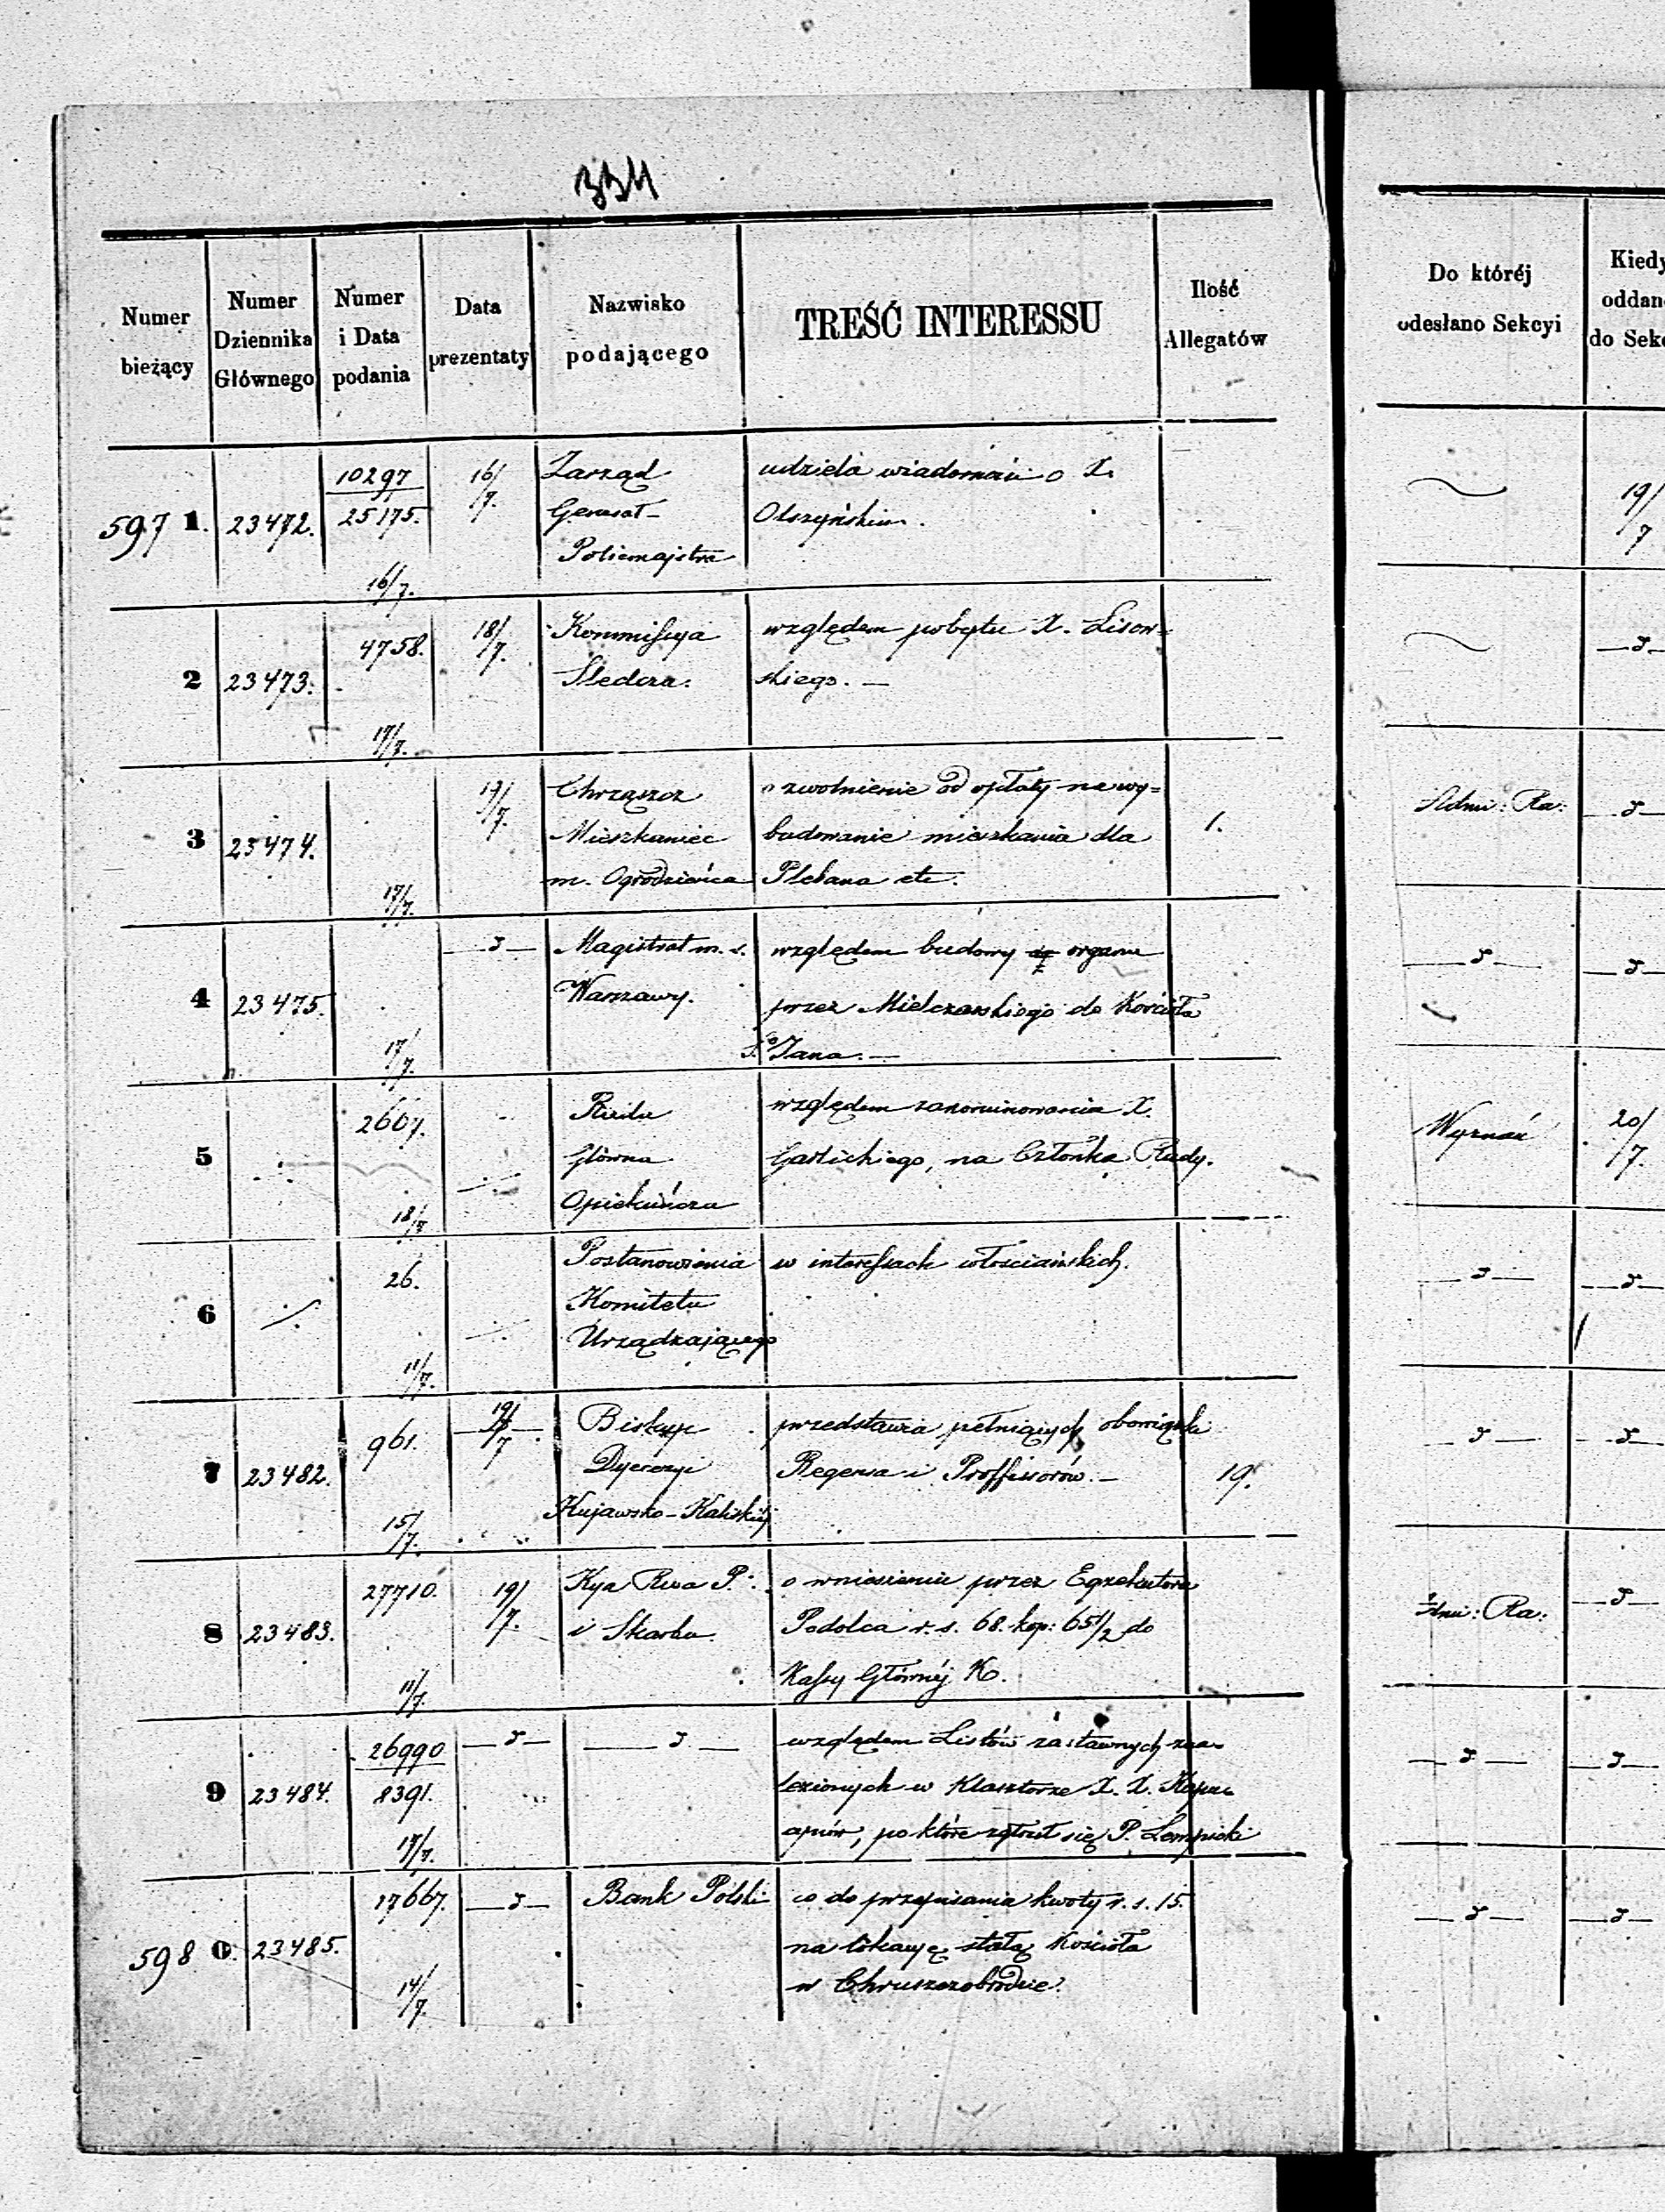 334
Numer bieżący
Numer Dziennika Głównego
Numer i Data podania
Data prezentaty
Nazwisko podającego
TREŚĆ INTERESSU
Ilość Allegatów
Do któréj odesłano Sekcyi
Kiedy oddan do Sek
597 1. 23472. 10297 / 25175. 16/7. 16/7. Zarząd udziela wiadomości o X. 19/7
Generał- Olszyńskim.
Policmajstra
2 23473. 4758. 17/7. 18/7. Kommissya względem pobytu X. Lisow= —d—
Śledcza. skiego. —
3 23474. 17/7. 17/7. Chrząszcz o zwolnienie od opłaty na wy= 1. Admi: Ra: —d—
Mieszkaniec budowanie mieszkania dla
m. Ogrodzieńca Plebana etc.
4 23475. 17/7. —d— Magistrat m. s. względem budowy organu —d— —d—
Warszawy. przez Mielczarskiego do Kościoła
Ś. Jana. —
5 2667. 18/7 Rada względem zanominowania X. Wyznań 20/7.
Główna Garlickiego, na Członka Rady.
Opiekuńcza
6 26. 11/7. Postanowienia w interessach włościańskich. —d— —d—
Komitetu
Urządzającego
7 23482. 961. 15/7. 19/7 Biskup przedstawia pełniących obowiązki 19. —d— —d—
Dyecezyi Regensa i Proffessorów. —
Kujawsko-Kaliskiéj
8 23483. 27710. 11/7. 19/7. Kya Rwa P. o wniesieniu przez Egzekutora Admi: Ra: —d—
i Skarbu. Podolca r. s. 68. kop: 65 1/2 do
Kassy Głównéj K.
9 23484. 26990 / 8391. 17/7. —d— —d— względem Listów zastawnych zna= —d— —d—
lezionych w Klasztorze X. X. Kapu=
cynów, po które zgłosił się P. Lempicki
598 0. 23485. 17667. 14/7. —d— Bank Polski co do przepisania kwoty r. s. 15. —d— —d—
na lokacyę stałą Kościoła
w Chruszczobrodzie.